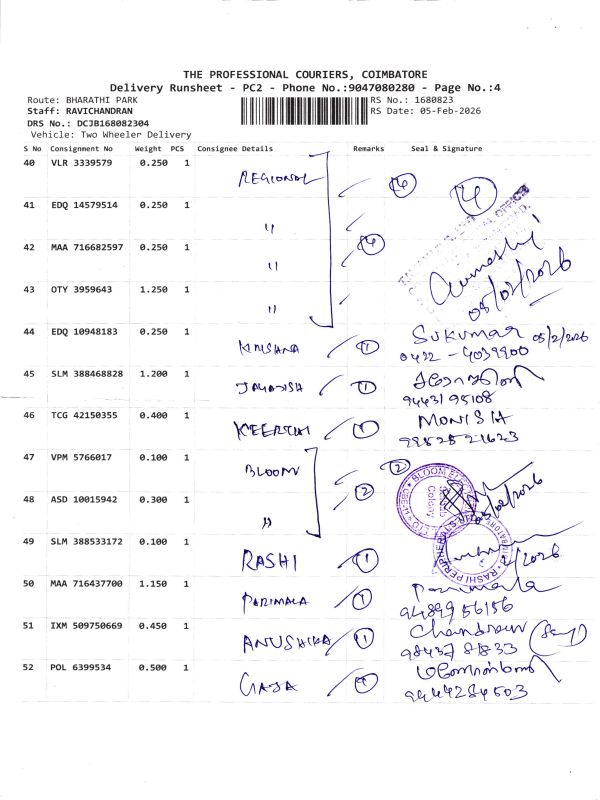 THE PROFESSIONAL COURIERS, COIMBATORE
Delivery Runsheet - PC2 - Phone No.:9047080280 - Page No.:4
Route: BHARATHI PARK RS No.: 1680823
Staff: RAVICHANDRAN RS Date: 05-Feb-2026
DRS No.: DCJB168082304
Vehicle: Two Wheeler Delivery
S No Consignment No Weight PCS Consignee Details Remarks Seal & Signature
40 VLR 3339579 0.250 1 REGIONAL 4 4
41 EDQ 14579514 0.250 1 "
42 MAA 716682597 0.250 1 " 4
43 OTY 3959643 1.250 1 " 05/02/2026
44 EDQ 10948183 0.250 1 KRISHNA 1 SUKUMAR 05/2/2026
0422 - 4039900
45 SLM 388468828 1.200 1 JAGADISH 1
9443195108
46 TCG 42150355 0.400 1 KEERTHI 1 MONISH
9952521623
47 VPM 5766017 0.100 1 BLOOM 2
48 ASD 10015942 0.300 1 " 2
49 SLM 388533172 0.100 1 RASHI 1
50 MAA 716437700 1.150 1 PARIMALA 1 Parimala
9489956156
51 IXM 509750669 0.450 1 ANUSHIKA 1
98437 81833
52 POL 6399534 0.500 1 GAJA 1
9444284503